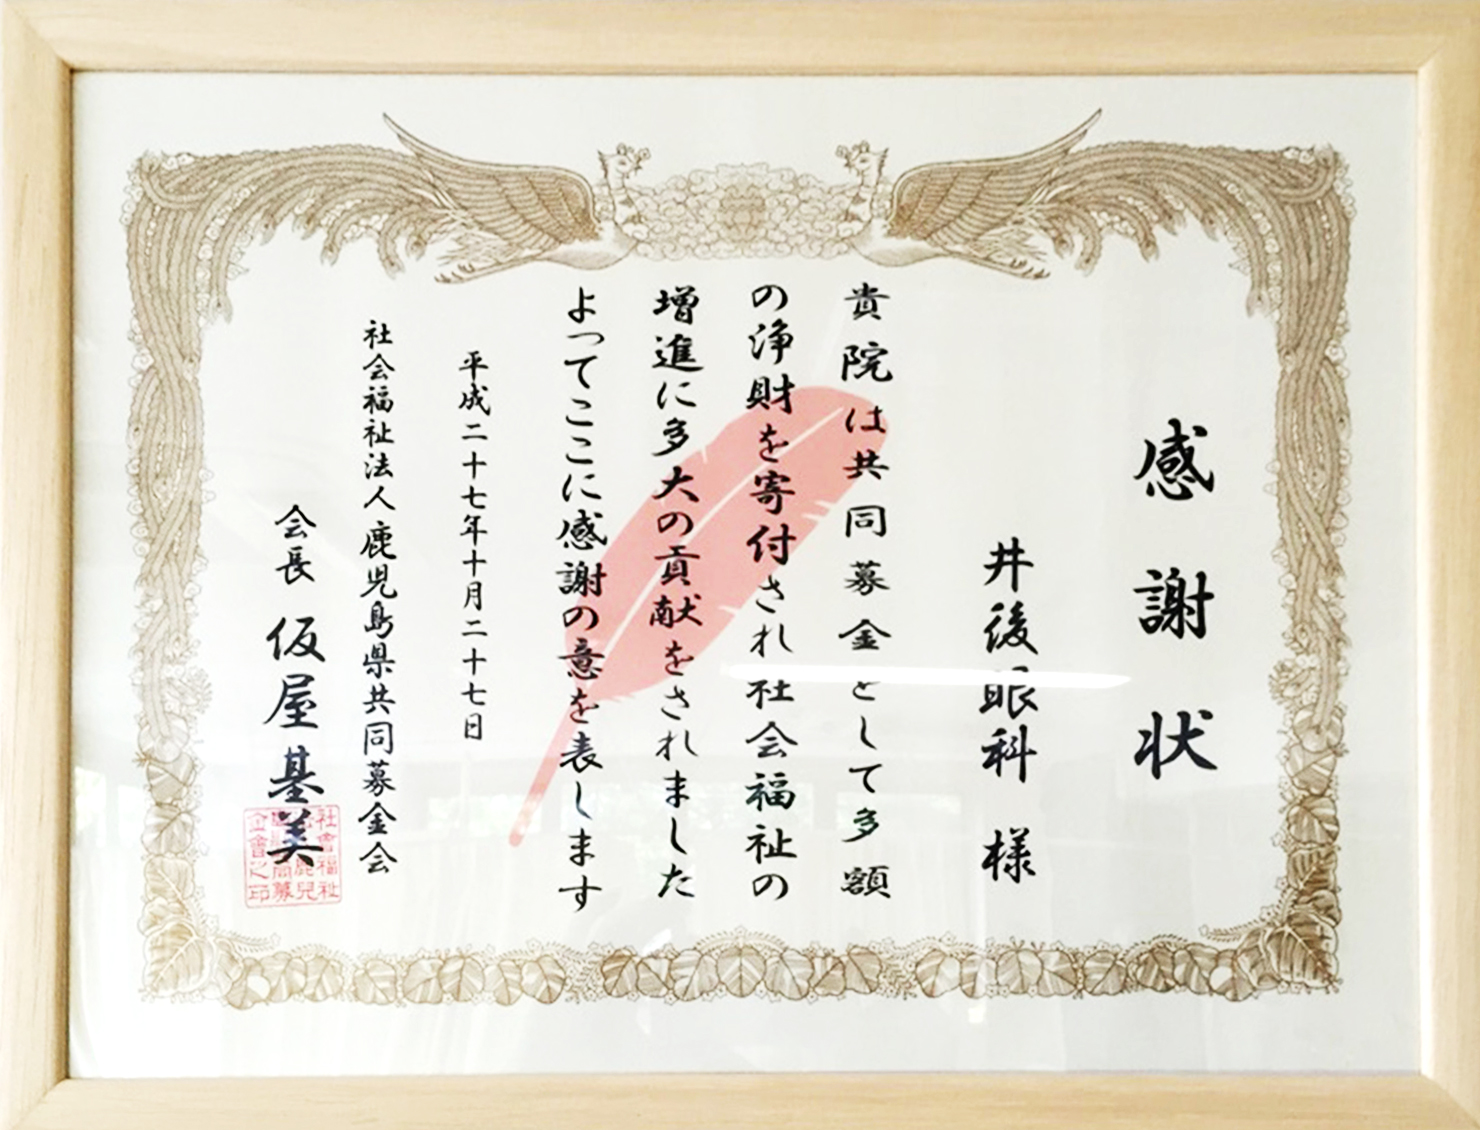 感謝状
井後眼科 様
貴院は共同募金として多額
の浄財を寄付され社会福祉の
増進に多大の貢献をされました
よってここに感謝の意を表します
平成二十七年十月二十七日
社会福祉法人鹿児島県共同募金会
会長 仮屋基美